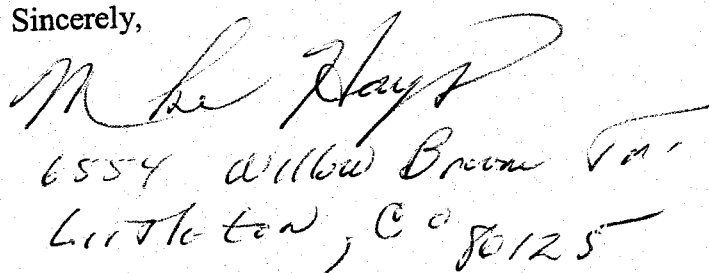 Sincerely,
Mike Hays
6554 Willow Broom Trl.
Littleton, CO 80125